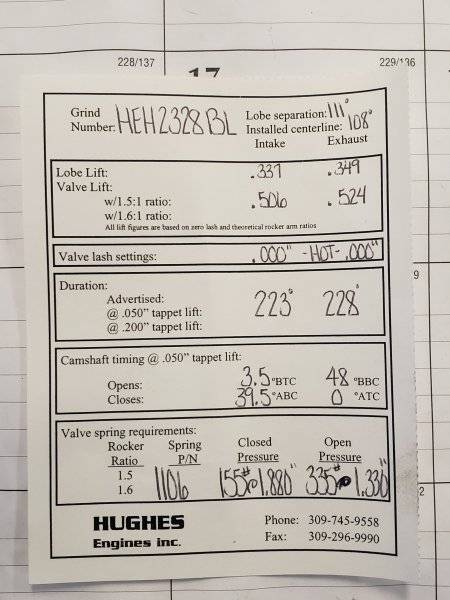 228/137
17
229/136
Grind Number: HEH2328BL
Lobe separation: 111°
Installed centerline: 108°
Intake Exhaust
Lobe Lift: .337 .349
Valve Lift:
w/1.5:1 ratio: .506 .524
w/1.6:1 ratio:
All lift figures are based on zero lash and theoretical rocker arm ratios
Valve lash settings: .000" -HOT- .000"
Duration:
Advertised:
@ .050” tappet lift: 223° 228°
@ .200” tappet lift:
Camshaft timing @ .050” tappet lift:
Opens: 3.5 °BTC 48 °BBC
Closes: 39.5 °ABC 0 °ATC
Valve spring requirements:
Rocker Spring Closed Open
Ratio P/N Pressure Pressure
1.5
1.6 1106 155# @ 1.880" 335# @ 1.330"
HUGHES Phone: 309-745-9558
Engines inc. Fax: 309-296-9990
9
2